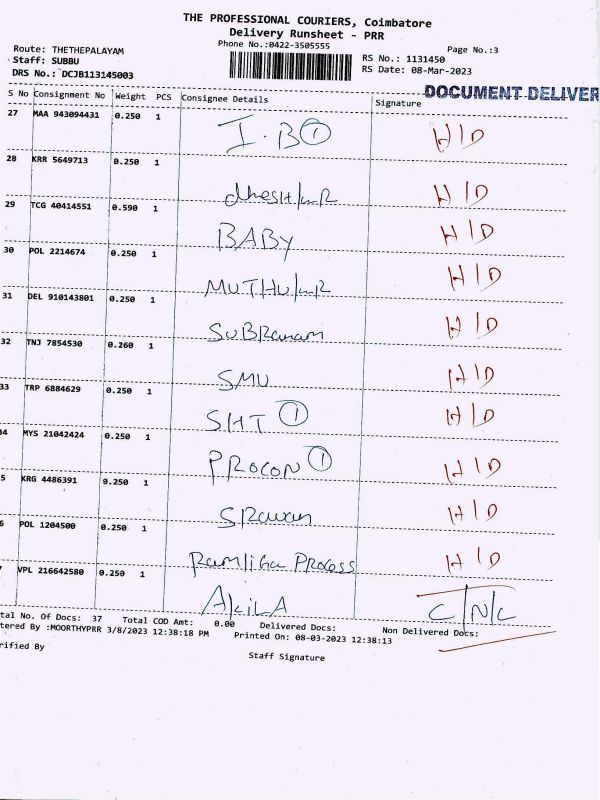 THE PROFESSIONAL COURIERS, Coimbatore
Delivery Runsheet - PRR
Phone No.:0422-3505555
Page No.:3
Route: THETHEPALAYAM
Staff: SUBBU
DRS No.: DCJB113145003
RS No.: 1131450
RS Date: 08-Mar-2023
DOCUMENT DELIVER
S No Consignment No Weight PCS Consignee Details Signature
27 MAA 943094431 0.250 1 I.B ① H/D
28 KRR 5649713 0.250 1 H/D
29 TCG 40414551 0.590 1 BABY H/D
30 POL 2214674 0.250 1 H/D
31 DEL 910143801 0.250 1 H/D
32 TNJ 7854530 0.260 1 SMU H/D
33 TRP 6884629 0.250 1 SHT ① H/D
34 MYS 21042424 0.250 1 PROCON ① H/D
5 KRG 4486391 0.250 1 H/D
6 POL 1204500 0.250 1 Process H/D
7 VPL 216642580 0.250 1 AkiLA C/N/C
tal No. Of Docs: 37 Total COD Amt: 0.00 Delivered Docs: Non Delivered Docs:
tered By :MOORTHYPRR 3/8/2023 12:38:18 PM Printed On: 08-03-2023 12:38:13
rified By
Staff Signature